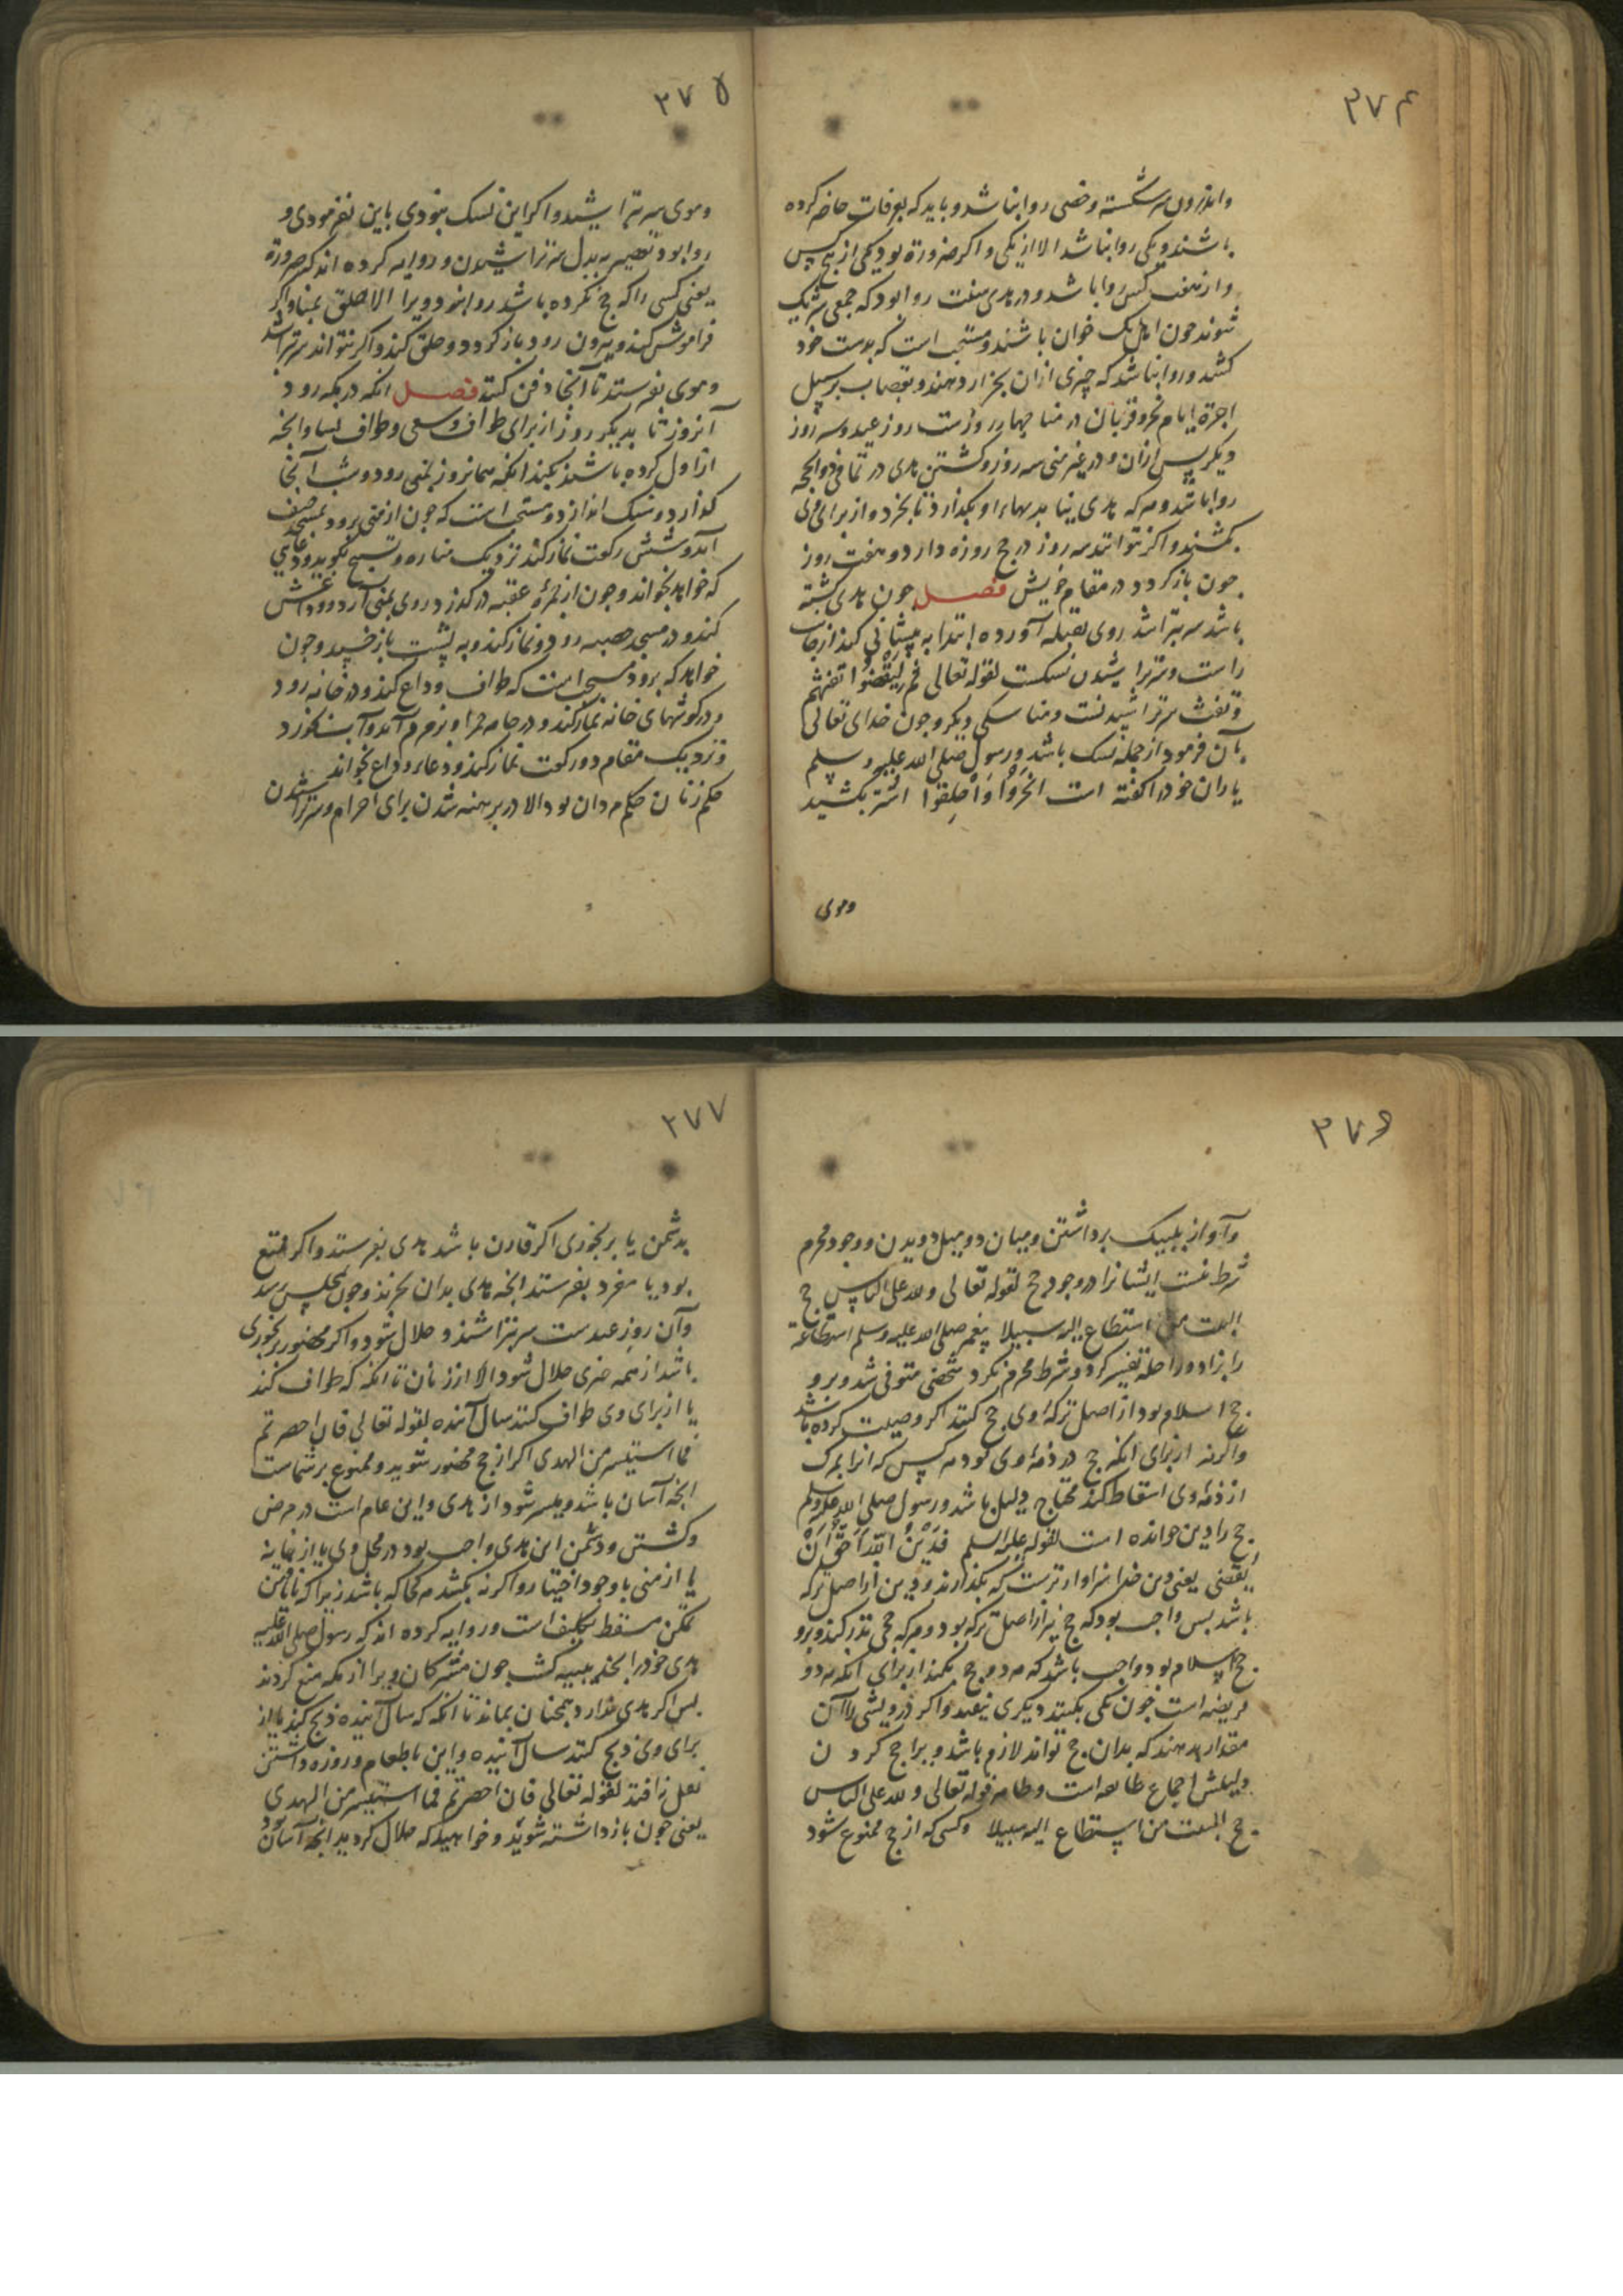 ۳۷۴
واندرون سر شکسته وخصی روا نباشد و باید که بعرفات حاضر کرده
باشند و یکی روا نباشد الا از یکی و اکر ضرورة بود یکی از پنج کس
و از هفت کس روا باشد و در هدی سنت روا بود که جمعی شریک
شوند چون اهل یک خوان باشند و مستحب است که بدست خود
کشد و روا نباشد که چیزی ازان بجزار دهند و بقصاب بر سبیل
اجرة ایام نحر و قربان در منا چهار روزست روز عید و سه روز
دیکر پس ازان و در غیر منی سه روز و کشتن هدی در تمامی ذوالحجه
روا باشد و هر که هدی نیابد بهاء او بکذارد تا بخرد و از برای وی
بکشند و اکر نتواند سه روز در حج روزه دارد و هفت روز
چون باز کردد در مقام خویش فصل چون هدی کشته
باشد سر بتراشد روی بقبله آورده ابتدا به پیشانی کند از جانب
راست و سر تراشیدن نسکست لقوله تعالی ثم لیقضوا تفثهم
و تفث سر تراشیدنست و مناسکی دیکر و چون خدای تعالی
بآن فرمود از جمله نسک باشد و رسول صلی الله علیه و سلم
یاران خود را کفته است انحروا واحلقوا اشتر بکشید
وموی
۳۷۵
وموی سر بتراشید و اکر این نسک نبودی باین نفرمودی و
روا بود تقصیر بدل سر تراشیدن و روایه کرده اند که صرورة
یعنی کسی را که حج نکرده باشد روا نبود ویرا الا حلق بمنا و اکر
فراموش کند و بیرون رود باز کردد و حلق کند و اکر نتواند سر بتراشد
وموی بفرستد تا آنجا دفن کنند فصل انکه در مکه رود
آنروز تا بدیکر روز از برای طواف وسعی و طواف نساء و انچه
از اول کرده باشد بکند انکه همانروز بمنی رود و شب آنجا
کذارد و سنک اندازد و مستحب است که چون از منی برود بمسجد خیف
آید و شش رکعت نماز کند نزدیک مناره و تسبیح بکوید و دعای
که خواهد بخواند و چون از جمرة عقبه در کذرد روی بمنی آرد و وداعش
کند و در مسجد حصبه رود و نماز کند و به پشت باز خسپد و چون
خواهد که برود مستحب است که طواف وداع کند و در خانه رود
و در کوشهای خانه نماز کند و در جامه حرا و بزمزم آید و آب بخورد
و نزدیک مقام دو رکعت نماز کند و دعاء وداع بخواند
حکم زنان حکم مردان بود الا در برهنه شدن برای احرام و سر تراشیدن
۳۷۶
وآواز بلبیک برداشتن ومیان دو میل دویدن و وجود محرم
شرط نیست ایشانرا در وجود حج لقوله تعالی ولله علی الناس حج
البیت من استطاع الیه سبیلا پیغمبر صلی الله علیه وسلم استطاعة
را بزاد و راحله تفسیر کرد و شرط محرم نکرد شخصی متوفی شد و برو
حج اسلام بود از اصل ترکه اوی حج کنند اکر وصیت کرده باشد
واکر نه از برای انکه حج در ذمه اوی بود هر کس که انرا بمرک
از ذمه وی اسقاط کند محتاج دلیل باشد و رسول صلی الله علیه وسلم
حج را دین خوانده است لقوله علیه السلم فدین الله احق ان
یقضی یعنی دین خدا سزاوارترست که بکذارند و دین از اصل ترکه
باشد پس واجب بود که حج نیز از اصل ترکه بود و هر که حجی نذر کند و برو
حج اسلام بود واجب باشد که هر دو حج بکند از برای انکه هر دو
فریضه است چون یکی بکند دیکری نیفتد و اکر درویشی را آن
مقدار بدهند که بدان حج تواند لازم باشد ویرا حج کردن
دلیلش اجماع طایفه است و ظاهر قوله تعالی ولله علی الناس
حج البیت من استطاع الیه سبیلا وکسی که از حج ممنوع شود
۳۷۷
بدشمن یا برنجوری اکر قارن باشد هدی بفرستد و اکر متمتع
بود یا مفرد بفرستد انچه هدی بدان بخرند و چون بمحلش رسد
وآن روز عیدست سر بتراشد و حلال شود و اکر محصور برنجوری
باشد از همه چیزی حلال شود الا از زنان تا انکه که طواف کند
یا از برای وی طواف کنند سال آینده بقوله تعالی فان احصرتم
فما استیسر من الهدی اکر از حج محصور شوید و ممنوع بر شماست
انچه آسان باشد و میسر شود از هدی و این عام است در مرض
و کشتن و دشمن این هدی واجب بود در محل وی یا از خانه
یا از منی با وجود اختیار و اکر نه بکشد هر کجا که باشد زیرا که نا
ممکن مسقط تکلیف است و روایه کرده اند که رسول صلی الله علیه
هدی خود را بحدیبیه کشت چون مشرکان ویرا از مکه منع کردند
پس اکر هدی ندارد همچنان بماند تا انکه که سال آینده ذبح کند یا از
برای وی ذبح کنند سال آینده و این باطعام و روزه داشتن
بدل نیافتد لقوله تعالی فان احصرتم فما استیسر من الهدی
یعنی چون بازداشته شوید و خواهید که حلال کردید انچه آسان بود